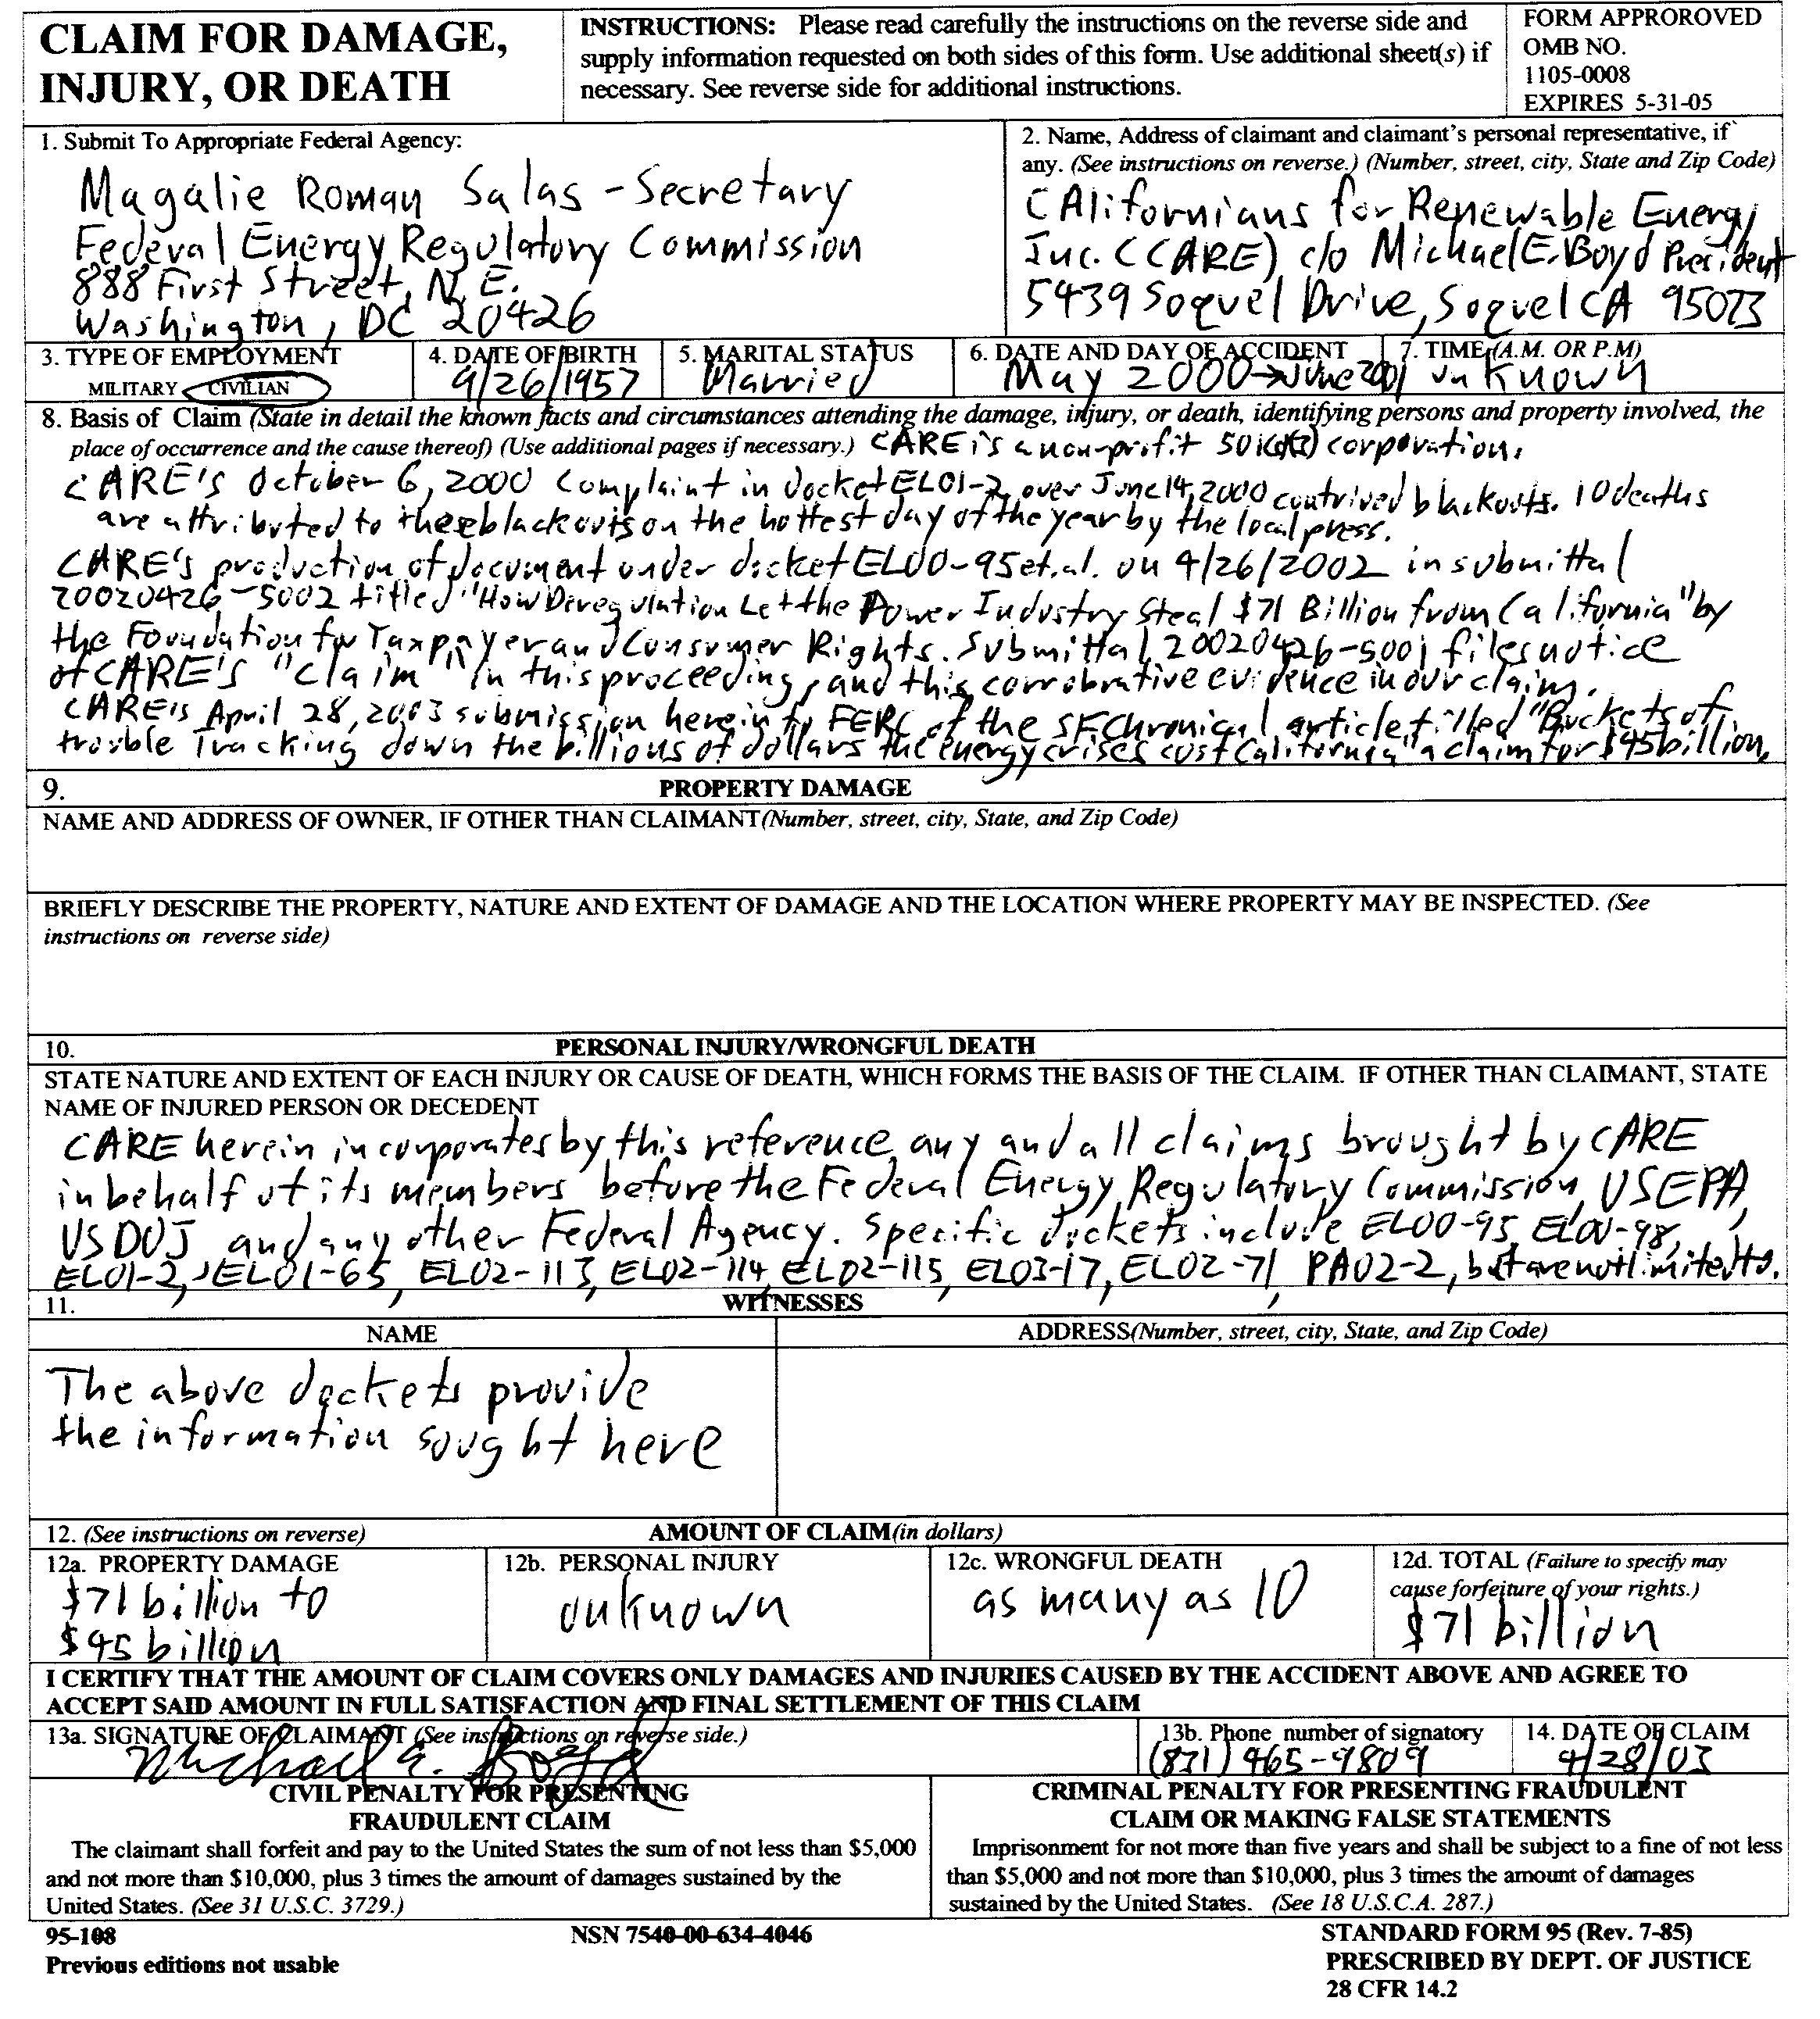 CLAIM FOR DAMAGE,
INJURY, OR DEATH
INSTRUCTIONS: Please read carefully the instructions on the reverse side and
supply information requested on both sides of this form. Use additional sheet(s) if
necessary. See reverse side for additional instructions.
FORM APPROROVED
OMB NO.
1105-0008
EXPIRES 5-31-05
1. Submit To Appropriate Federal Agency:
Magalie Roman Salas - Secretary
Federal Energy Regulatory Commission
888 First Street, N.E.
Washington, DC 20426
2. Name, Address of claimant and claimant's personal representative, if
any. (See instructions on reverse.) (Number, street, city, State and Zip Code)
CAlifornians for Renewable Energy
Inc. (CARE) c/o Michael E. Boyd President
5439 Soquel Drive, Soquel CA 95073
3. TYPE OF EMPLOYMENT
MILITARY CIVILIAN
4. DATE OF BIRTH
9/26/1957
5. MARITAL STATUS
Married
6. DATE AND DAY OF ACCIDENT
May 2000→June 2001
7. TIME (A.M. OR P.M)
unknown
8. Basis of Claim (State in detail the known facts and circumstances attending the damage, injury, or death, identifying persons and property involved, the
place of occurrence and the cause thereof) (Use additional pages if necessary.) CARE is a non-profit 501(c)(3) corporation.
CARE's October 6, 2000 Complaint in docket EL01-2, over June 14, 2000 contrived blackouts. 10 deaths
are attributed to these blackouts on the hottest day of the year by the local press.
CARE's production of document under docket EL00-95 et.al. on 4/26/2002 in submittal
20020426-5002 titled "How Deregulation Let the Power Industry Steal $71 Billion from California" by
the Foundation for Taxpayer and Consumer Rights. Submittal 20020426-5001 files notice
of CARE'S "claim" in this proceeding, and this corrobrative evidence in our claim.
CARE's April 28, 2003 submission herein to FERC of the SF Chronical article titled "Buckets of
trouble Tracking down the billions of dollars the energy crises cost California" a claim for $45 billion.
9. PROPERTY DAMAGE
NAME AND ADDRESS OF OWNER, IF OTHER THAN CLAIMANT(Number, street, city, State, and Zip Code)
BRIEFLY DESCRIBE THE PROPERTY, NATURE AND EXTENT OF DAMAGE AND THE LOCATION WHERE PROPERTY MAY BE INSPECTED. (See
instructions on reverse side)
10. PERSONAL INJURY/WRONGFUL DEATH
STATE NATURE AND EXTENT OF EACH INJURY OR CAUSE OF DEATH, WHICH FORMS THE BASIS OF THE CLAIM. IF OTHER THAN CLAIMANT, STATE
NAME OF INJURED PERSON OR DECEDENT
CARE herein incorporates by this reference any and all claims brought by CARE
in behalf of its members before the Federal Energy Regulatory Commission, USEPA,
USDOJ and any other Federal Agency. Specific dockets include EL00-95, EL00-98,
EL01-2, EL01-65, EL02-113, EL02-114, EL02-115, EL03-17, EL02-71, PA02-2, but are not limited to.
11. WITNESSES
NAME
ADDRESS(Number, street, city, State, and Zip Code)
The above dockets provide
the information sought here
12. (See instructions on reverse) AMOUNT OF CLAIM(in dollars)
12a. PROPERTY DAMAGE
$71 billion to
$45 billion
12b. PERSONAL INJURY
unknown
12c. WRONGFUL DEATH
as many as 10
12d. TOTAL (Failure to specify may
cause forfeiture of your rights.)
$71 billion
I CERTIFY THAT THE AMOUNT OF CLAIM COVERS ONLY DAMAGES AND INJURIES CAUSED BY THE ACCIDENT ABOVE AND AGREE TO
ACCEPT SAID AMOUNT IN FULL SATISFACTION AND FINAL SETTLEMENT OF THIS CLAIM
13a. SIGNATURE OF CLAIMANT (See instructions on reverse side.)
Michael E. Boyd
13b. Phone number of signatory
(831) 465-9809
14. DATE OF CLAIM
4/28/03
CIVIL PENALTY FOR PRESENTING
FRAUDULENT CLAIM
The claimant shall forfeit and pay to the United States the sum of not less than $5,000
and not more than $10,000, plus 3 times the amount of damages sustained by the
United States. (See 31 U.S.C. 3729.)
CRIMINAL PENALTY FOR PRESENTING FRAUDULENT
CLAIM OR MAKING FALSE STATEMENTS
Imprisonment for not more than five years and shall be subject to a fine of not less
than $5,000 and not more than $10,000, plus 3 times the amount of damages
sustained by the United States. (See 18 U.S.C.A. 287.)
95-108
Previous editions not usable
NSN 7540-00-634-4046
STANDARD FORM 95 (Rev. 7-85)
PRESCRIBED BY DEPT. OF JUSTICE
28 CFR 14.2